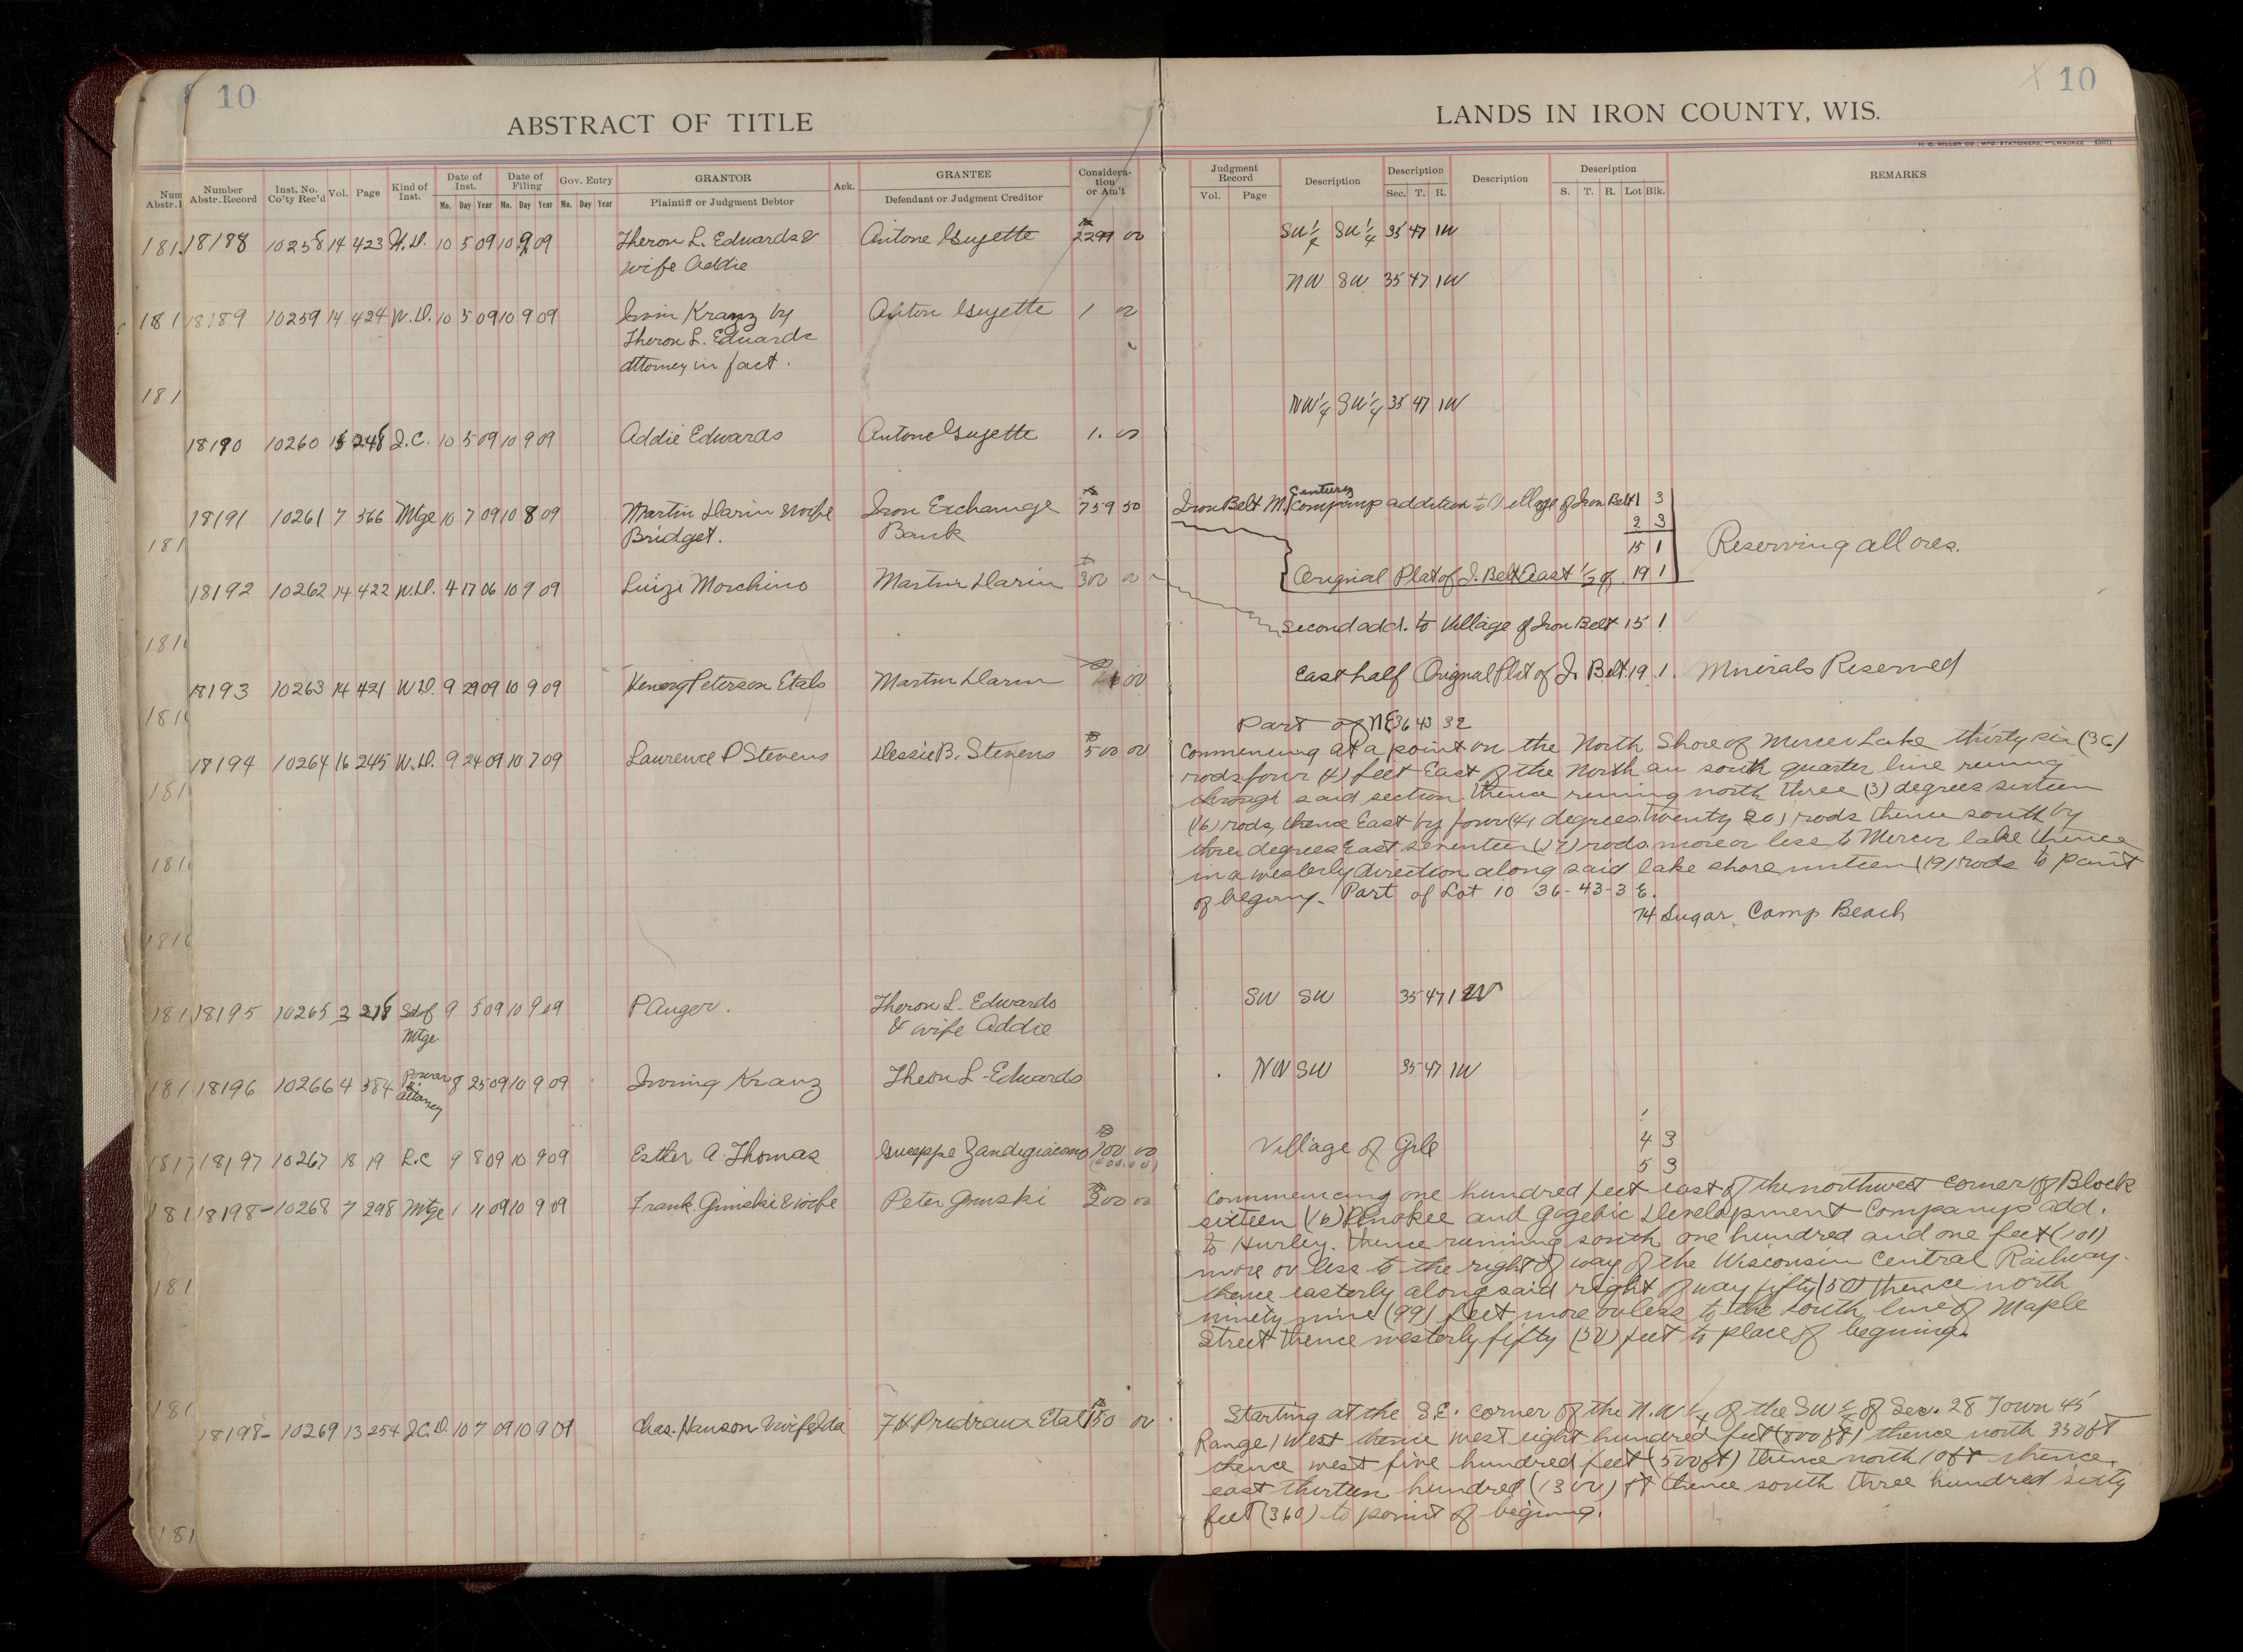 10
ABSTRACT OF TITLE
Number Abstr. Record Inst. No. Co'ty Rec'd Vol. Page Kind of Inst. Date of Inst. Mo. Day Year Date of Filing Mo. Day Year Gov. Entry Mo. Day Year GRANTOR Plaintiff or Judgment Debtor Ack. GRANTEE Defendant or Judgment Creditor Considera-tion or Am't
18188 10258 14 423 W.D. 10 5 09 10 9 09 Theron L. Edwards & Antone Guyette 00
wife Addie
18189 10259 14 424 W.D. 10 5 09 10 9 09 Irvin Kranz by Anton Guyette 1 00
Theron L. Edwards
attorney in fact.
18190 10260 15 248 Q.C. 10 5 09 10 9 09 Addie Edwards Antone Guyette 1. 00
18191 10261 7 366 Mtge 10 7 09 10 8 09 Martin Darin & wife Iron Exchange 759 50
Bridget. Bank
18192 10262 14 422 W.D. 4 17 06 10 9 09 Luizi Morchino Martin Darin 300 00
18193 10263 14 421 W.D. 9 29 09 10 9 09 Henery Peterson Etals Martin Darin 1 00
18194 10264 16 245 W.D. 9 24 09 10 7 09 Laurence P Stevens Dessie B. Stevens 500 00
18195 10265 2 Sat of 9 5 09 10 9 09 P Auger. Theron L. Edwards
Mtge. & wife Addie
18196 10266 4 384 Power of attorney 8 25 09 10 9 09 Irving Kranz Theon L. Edwards
18197 10267 18 19 L.C 9 8 09 10 9 09 Esther A. Thomas Guseppe Zandigiacomo 100 00
18198 - 10268 7 298 Mtge 1 11 09 10 9 09 Frank Gimski & wife Peter Gimski 300 00
18198 - 10269 13 254 Q.C.D. 10 7 09 10 9 09 Chas. Hanson & wife Ida F H Prideaux Etal 150 00
10
LANDS IN IRON COUNTY, WIS.
H. C. MILLER CO., MFG. STATIONERS, MILWAUKEE
Judgment Record Vol. Page Description Description Sec. T. R. Description Description S. T. R. Lot Blk. REMARKS
SW 1/4 SW 1/4 35 47 1W
NW SW 35 47 1W
NW 1/4 SW 1/4 35 47 1W
Century
Iron Belt M. Company addition to Village of Iron Belt 1 3
2 3
15 1 Reserving all ores.
Original Plat of I. Belt East 1/2 of 19 1
Second add. to Village of Iron Belt 15 1
East half Orignal Plat of I. Belt. 19 1. Minirals Reserved
Part of NE 36 43 32
Commencing at a point on the North Shore of Mercer Lake thirty six (36)
rods four (4) feet East of the North an south quarter line runing
through said section thence runing north three (3) degrees sixteen
(16) rods, thence East by four (4) degrees twenty 20) rods thence south by
three degrees East seventeen (17) rods more or less to Mercer lake thence
in a westerly direction along said lake shore ninteen (19) rods to point
of beging. Part of Lot 10 36-43-3 E.
74 Sugar Camp Beach
SW SW 35 47 1W
NW SW 35 47 1W
Village of Gile 4 3
5 3
Commencing one hundred feet east of the northwest corner of Block
sixteen (16) Penokee and Gogebic Development Companys add.
to Hurley. thence running south one hundred and one feet (101)
more or less to the right of way of the Wisconsin Central Railway.
thence easterly along said right of way fifty (50) thence north
ninety nine (99) feet more or less to the South line of Maple
Street thence westerly fifty (50) feet to place of begning.
Starting at the S.E. corner of the N.W 1/4 of the SW 1/4 of Sec. 28 Town 45
Range 1 West thence west eight hundred feet (800 ft) thence north 350 ft
thence west five hundred feet (500 ft) thence north 10 ft thence
east thirteen hundred (1300) ft thence south three hundred sixty
feet (360) to point of begining.